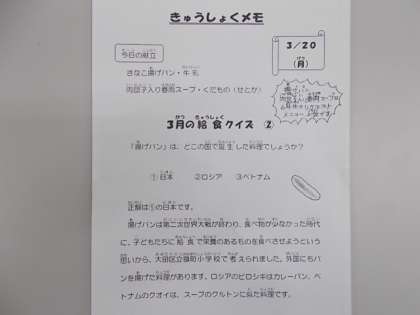 きゅうしょくメモ
3/20
(月)
今日の献立
きなこ揚げパン・牛乳
肉団子入り春雨スープ・くだもの(せとか)
3月の給食クイズ ②
「揚げパン」は、どこの国で誕生した料理でしょうか?
①日本 ②ロシア ③ベトナム
正解は①の日本です。
揚げパンは第二次世界大戦が終わり、食べ物が少なかった時代
に、子どもたちに給食で栄養のあるものを食べさせようという
思いから、大田区立嶺町小学校で考えられました。外国にもパ
ンを揚げた料理があります。ロシアのピロシキはカレーパン、ベ
トナムのクオイは、スープのクルトンに似た料理です。